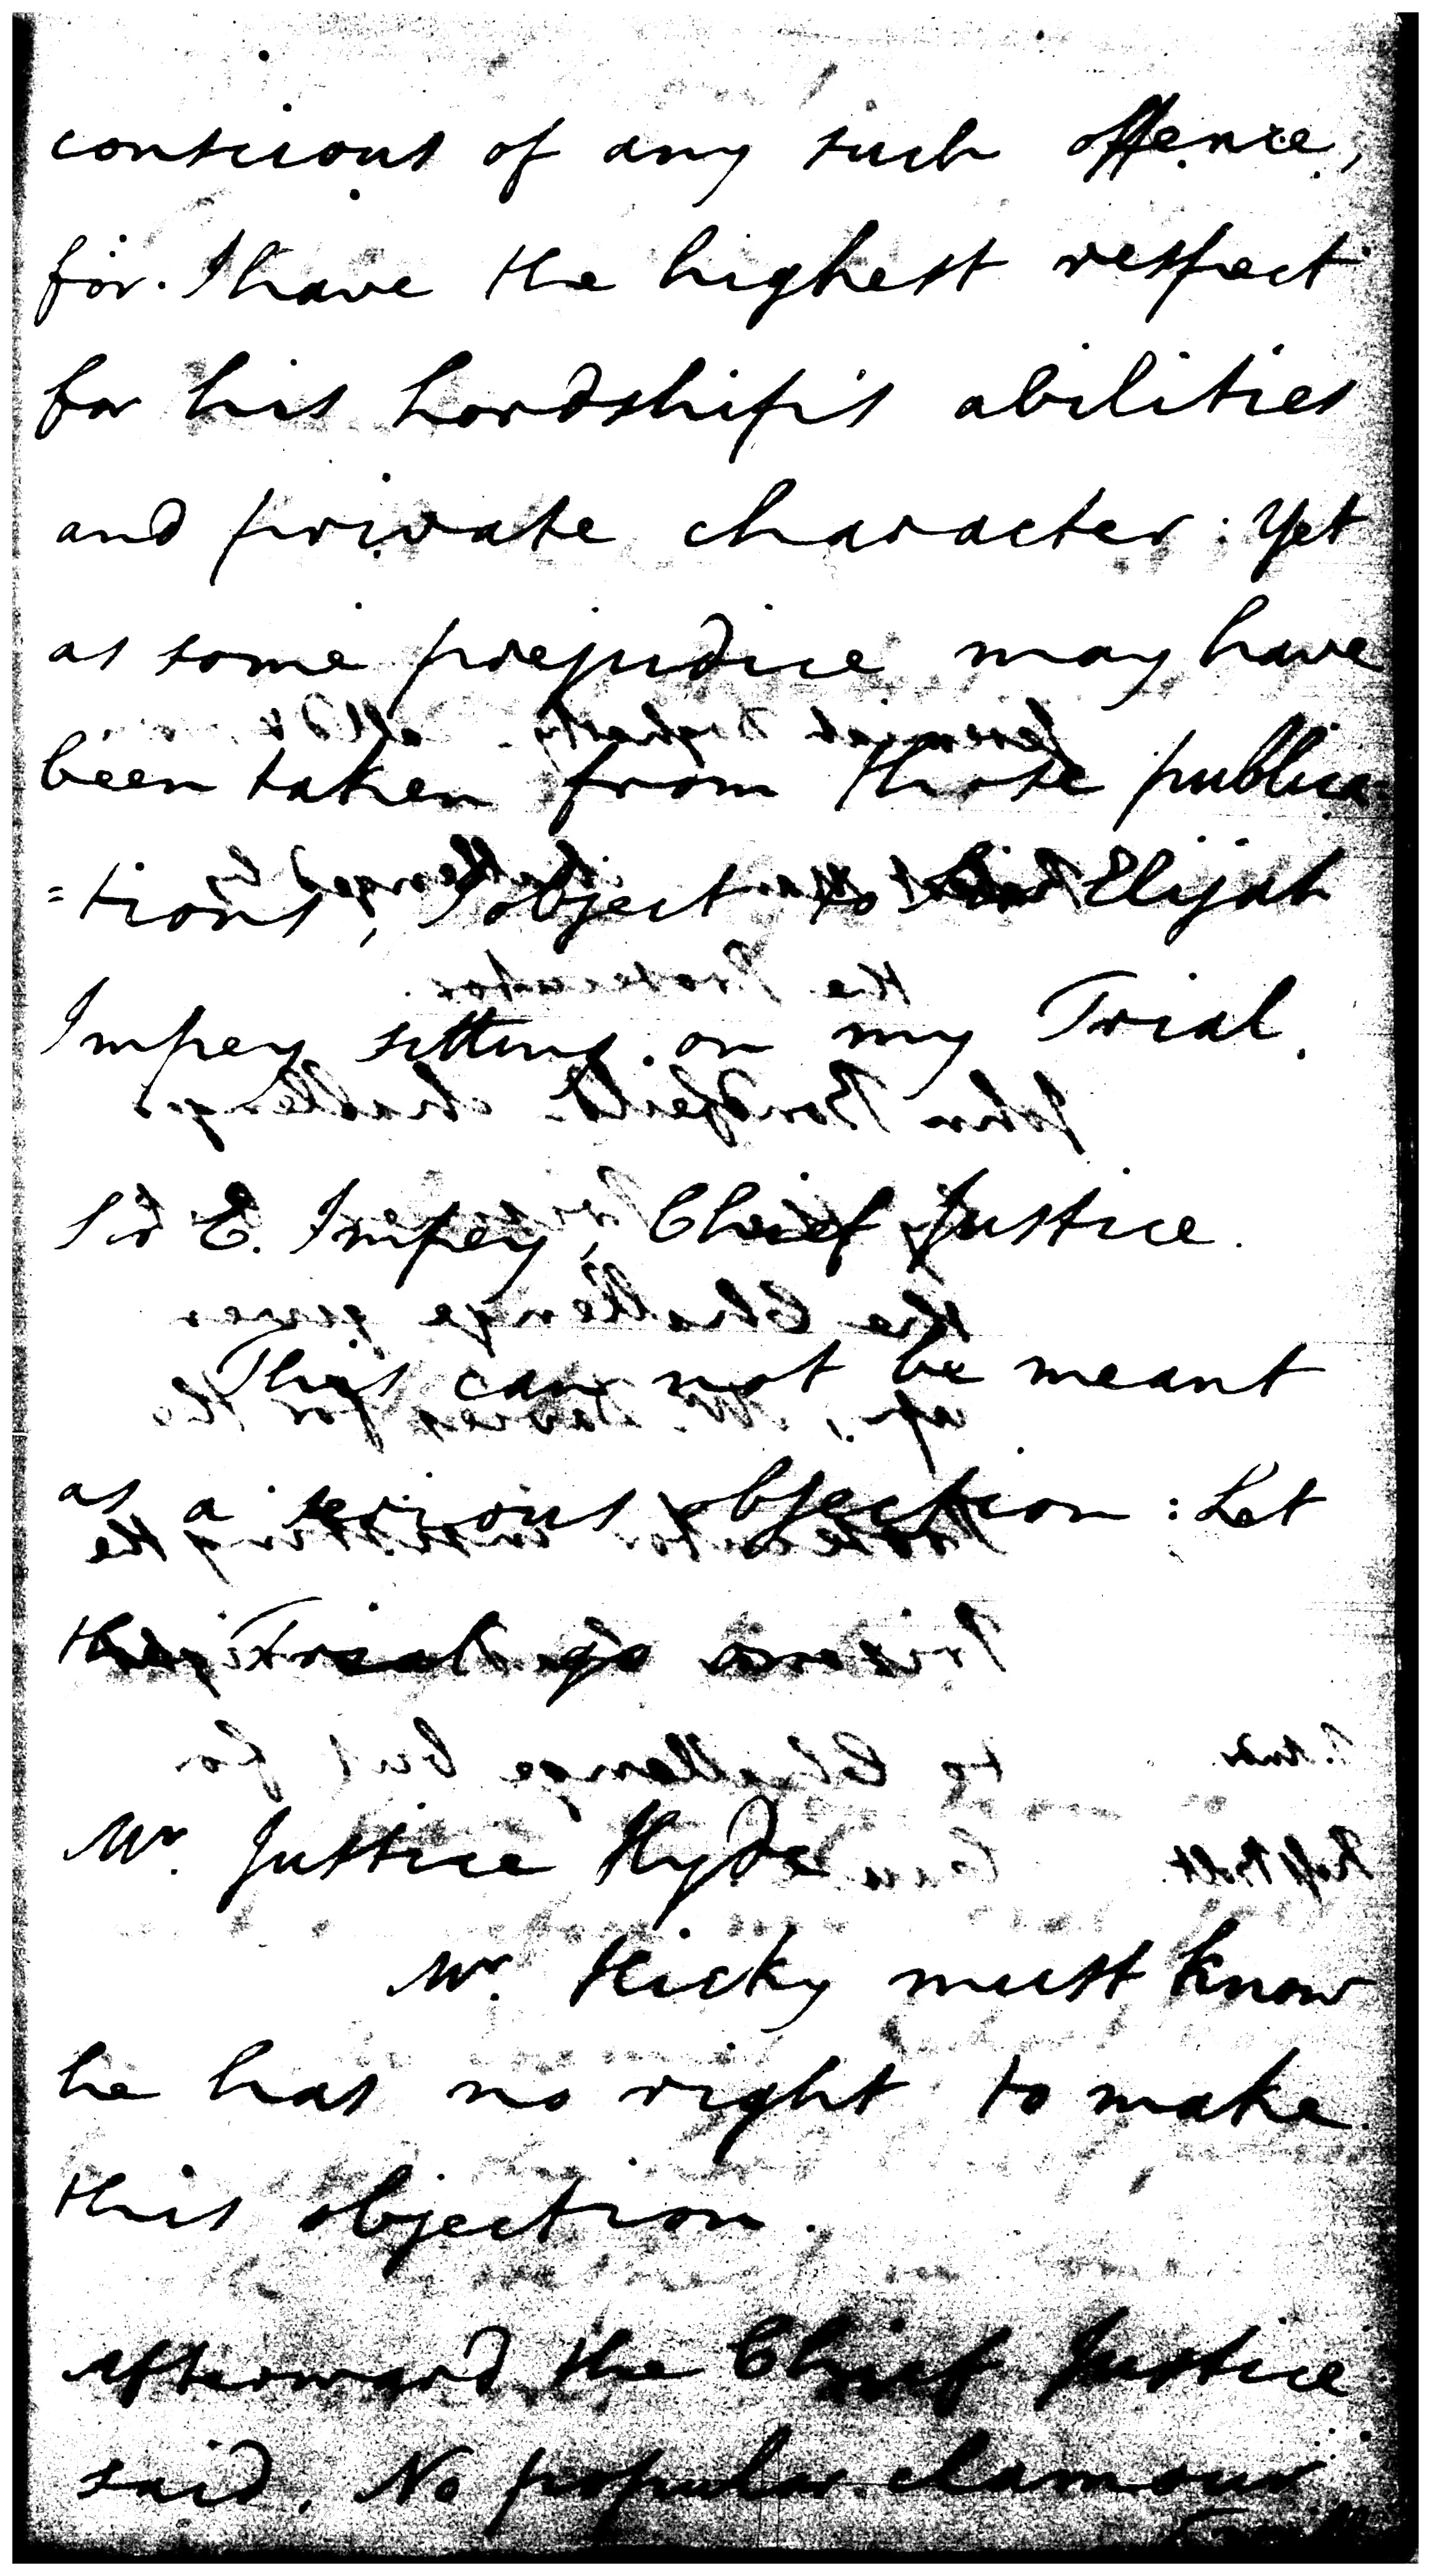 conscious of any such offence,
for I have the highest respect
for his Lordship's abilities
and private character: Yet
as some prejudice may have
been taken from those publica=
=tions, I object to Elijah
Impey sitting on my Trial.
Sir E. Impey, Chief Justice.
This can not be meant
as a serious objection: Let
the Trial go on.
Mr. Justice Hyde
Mr. Hicky must know
he has no right to make
this objection.
Afterward the Chief Justice
said, No popular clamour